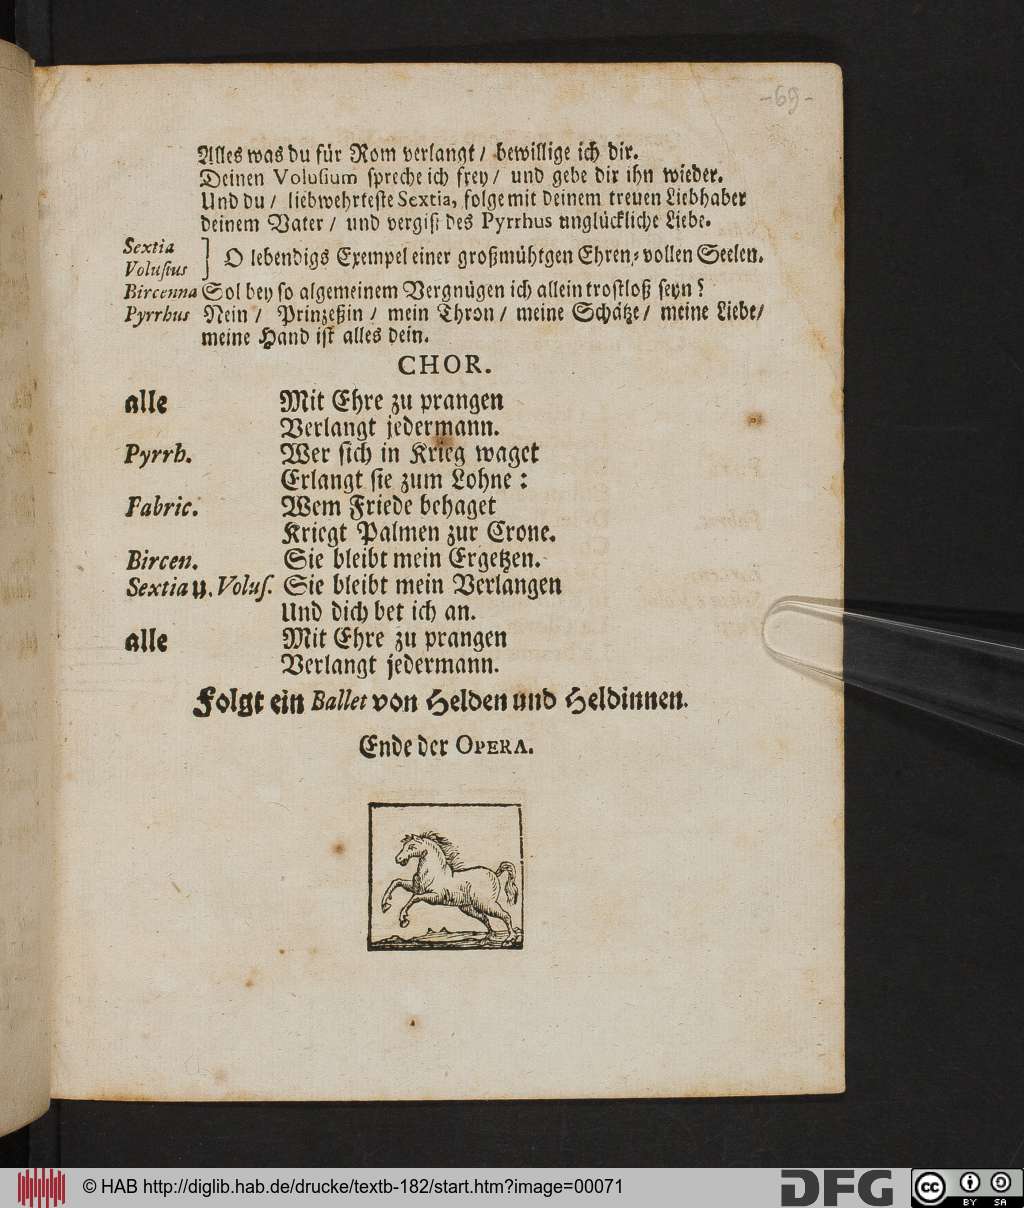 -69-
Alles was du für Rom verlangt / bewillige ich dir.
Deinen Volusium spreche ich frey / und gebe dir ihn wieder.
Und du / liebwehrteste Sextia, folge mit deinem treuen Liebhaber
deinem Vater / und vergiß des Pyrrhus unglückliche Liebe.
Sextia
Volusius ] O lebendigs Exempel einer großmühtgen Ehren-vollen Seelen.
Bircenna Sol bey so algemeinem Vergnügen ich allein trostloß seyn?
Pyrrhus Nein / Prinzeßin / mein Thron / meine Schätze / meine Liebe/
meine Hand ist alles dein.
CHOR.
alle Mit Ehre zu prangen
Verlangt jedermann.
Pyrrh. Wer sich in Krieg waget
Erlangt sie zum Lohne:
Fabric. Wem Friede behaget
Kriegt Palmen zur Crone.
Bircen. Sie bleibt mein Ergetzen.
Sextia u. Voluſ. Sie bleibt mein Verlangen
Und dich bet ich an.
alle Mit Ehre zu prangen
Verlangt jedermann.
Folgt ein Ballet von Helden und Heldinnen.
Ende der OPERA.
© HAB http://diglib.hab.de/drucke/textb-182/start.htm?image=00071
DFG
cc BY SA